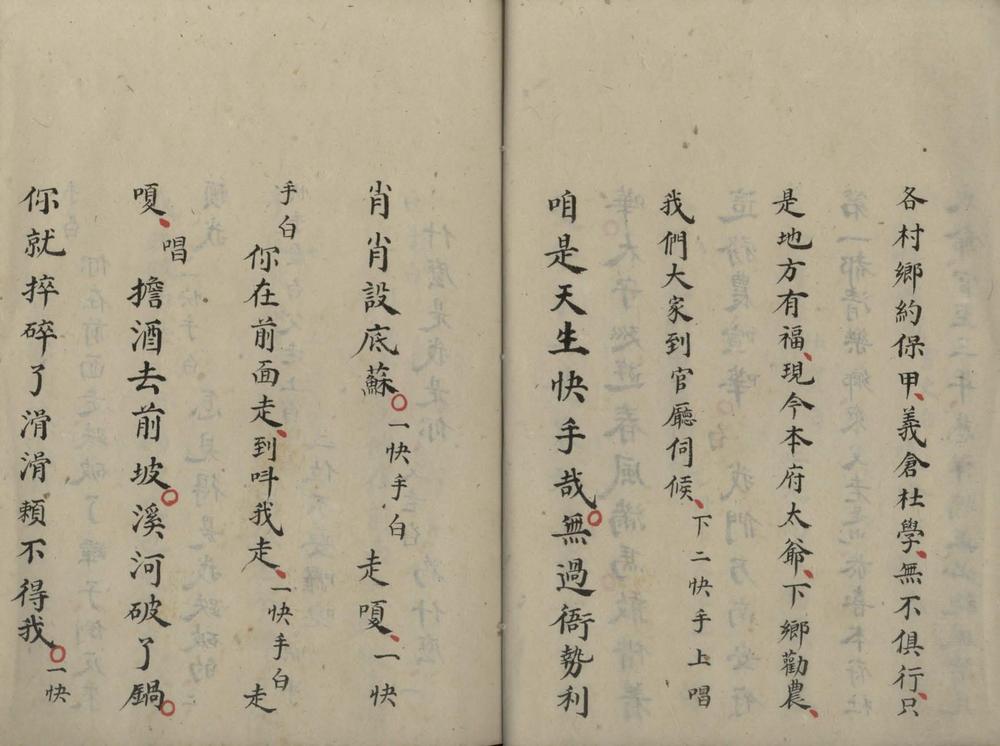 各村鄉約保甲、義倉社學、無不俱行、只
是地方有福、現今本府太爺、下鄉勸農、
我們大家到官廳伺候、下二快手上唱
咱是天生快手哉。無過衙勢利
肖肖設底蘇。一快手白走嗄、一快
手白你在前面走、到呌我走、一快手白走
嗄、唱擔酒去前坡。溪河破了鍋。
你就捽碎了滑滑賴不得我。一快